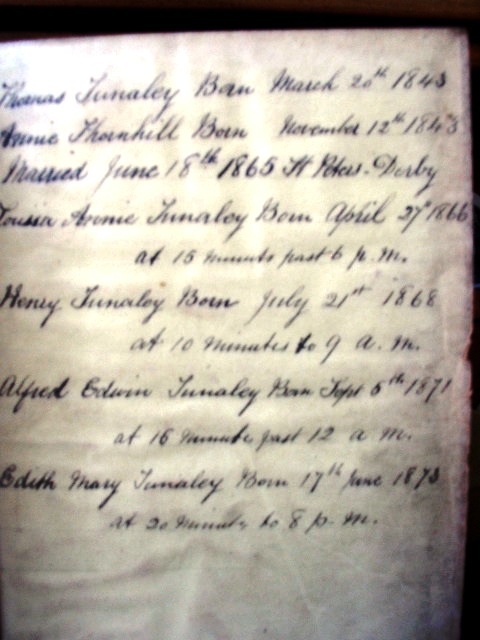 Thomas Tunaley Born March 20th 1843
Annie Thornhill Born November 12th 1843
Married June 18th 1865 St Peters. Derby
Annie Tunaley Born April 27th 1866
at 15 minuts past 6 p.m.
Henry Tunaley Born July 21st 1868
at 10 minutes to 9 a.m.
Alfred Edwin Tunaley Born Sept 5th 1871
at 15 minuts past 12 a m.
Edith Mary Tunaley Born 17th June 1873
at 20 minuts to 8 p.m.